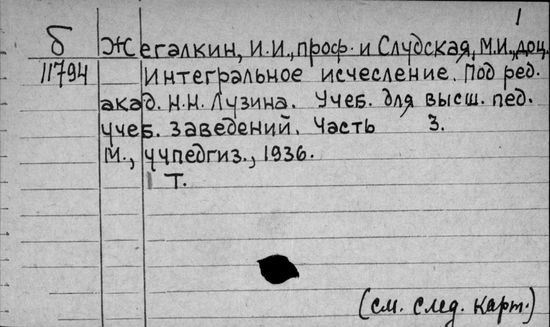 1
б Жегалкин, И.И., проф. и Слудская, М.И., доц.
11794 Интегральное исчесление. Под ред.
акад. Н.Н. Лузина. Учеб. для высш. пед.
учеб. заведений. Часть 3.
М., учпедгиз., 1936.
1 Т.
(см. след. карт.)